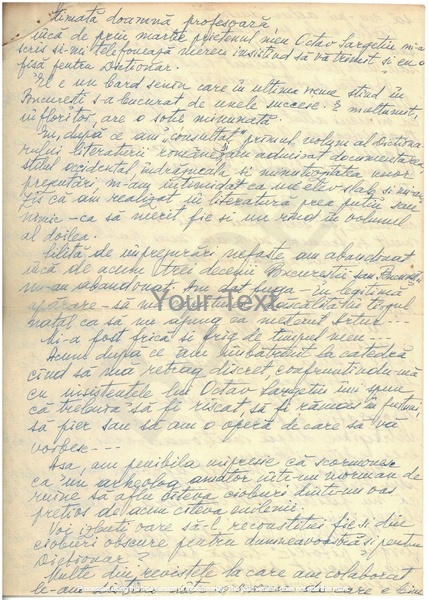 Stimată doamnă profesoară
încă de prin martie prietenul meu Octav Sargețiu mi-a
scris și-mi telefonează mereu insistînd să vă trimit și eu o
fișă pentru Dicționar.
El e un bard senin care în ultima vreme stînd în
București s-a bucurat de unele succese. E mulțumit,
înfloritor, are o soție minunată.
Eu, după ce am „consultat” primul volum al Dicționa-
rului literaturii române și am admirat documentarea,
stilul occidental, îndrăzneala și minuțiozitatea unor
prezentări, m-am intimidat ca un elev slab și mi-am
zis că am realizat în literatură prea puțin sau
nimic – ca să merit fie și un rînd în volumul
al doilea.
Silită de împrejurări nefaste am abandonat
încă de acum trei decenii Bucureștii sau Bucureștii
m-au abandonat. Am dat fuga – în legitimă
apărare – să mă tîrgul
natal ca să nu ajung ca meșterul
Mi-a fost frică și frig de timpul meu...
Acum după ce am îmbătrînit la catedră
cînd să mă retrag discret confruntîndu-mă
cu insistențele lui Octav Sargețiu îmi spun
că trebuia să fi riscat, să fi rămas în
să pier sau să am o operă de care să vă
vorbesc...
Așa, am penibila impresie că scormonesc
ca un arheolog amator într-un morman de
ruine să aflu cîteva cioburi dintr-un vas
prețios de acum cîteva milenii.
Voi izbuti oare să-l reconstitui fie și din
cioburi obscure pentru dumneavoastră și pentru
Dicționar?
Multe din revistele la care am colaborat
le-am
Your Text